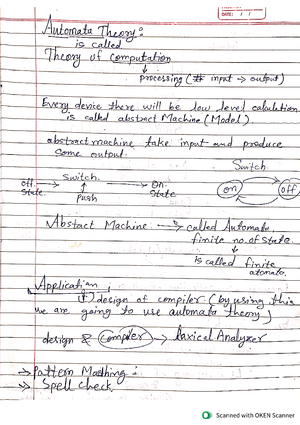 DATE: / /
Automata Theory:
is called
Theory of Computation
processing (# input → output)
Every device there will be low level calculation
is called abstract Machine (Model).
abstract machine take input and produce
some output.
Switch
off Switch. → On.
State Push State
on off
Abstact Machine → called Automata,
finite no. of state.
is called finite
atomata.
Application:
(1) design of compiler (by using this
we are going to use automata theory)
design & Compiler → Laxical Analyzer
→ Pattern Mathing:
→ Spell check.
Scanned with OKEN Scanner